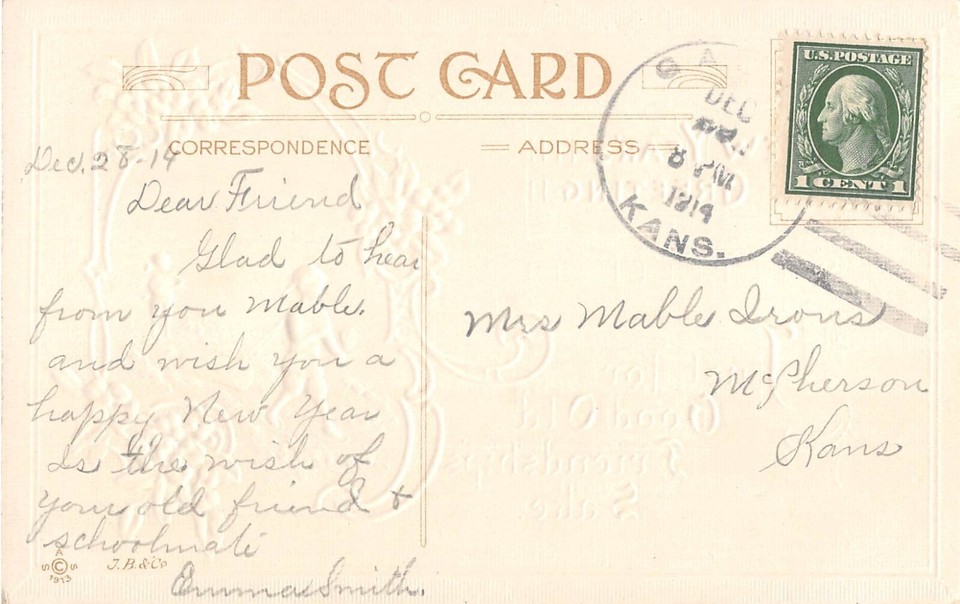 POST CARD
CORRESPONDENCE
ADDRESS
Dec. 28-14
Dear Friend
Glad to hear
from you Mable.
and wish you a
happy New Year
Is the wish of
your old friend &
schoolmate
Emma Smith.
A
S © S
1913
J.B.&Co
DEC
8 PM
1914
KANS.
U.S. POSTAGE
1 CENT 1
Mrs Mable Irons
McPherson
Kans
For
Good Old
Friendship's
Sake.